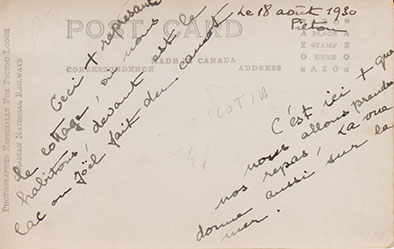 Le 18 août 1930
Pictou
POST CARD
MADE IN CANADA
CORRESPONDENCE
ADDRESS
PLACE
STAMP
HERE
AZO
PHOTOGRAPHED ESPECIALLY FOR PICTOU LODGE
CANADIAN NATIONAL RAILWAYS
Ceci + représente
le cottage où nous
habitons, devant est le
lac où Joël fait du canot
C'est ici + que
nous allons prendre
nos repas, La vue
donne aussi sur la
mer.